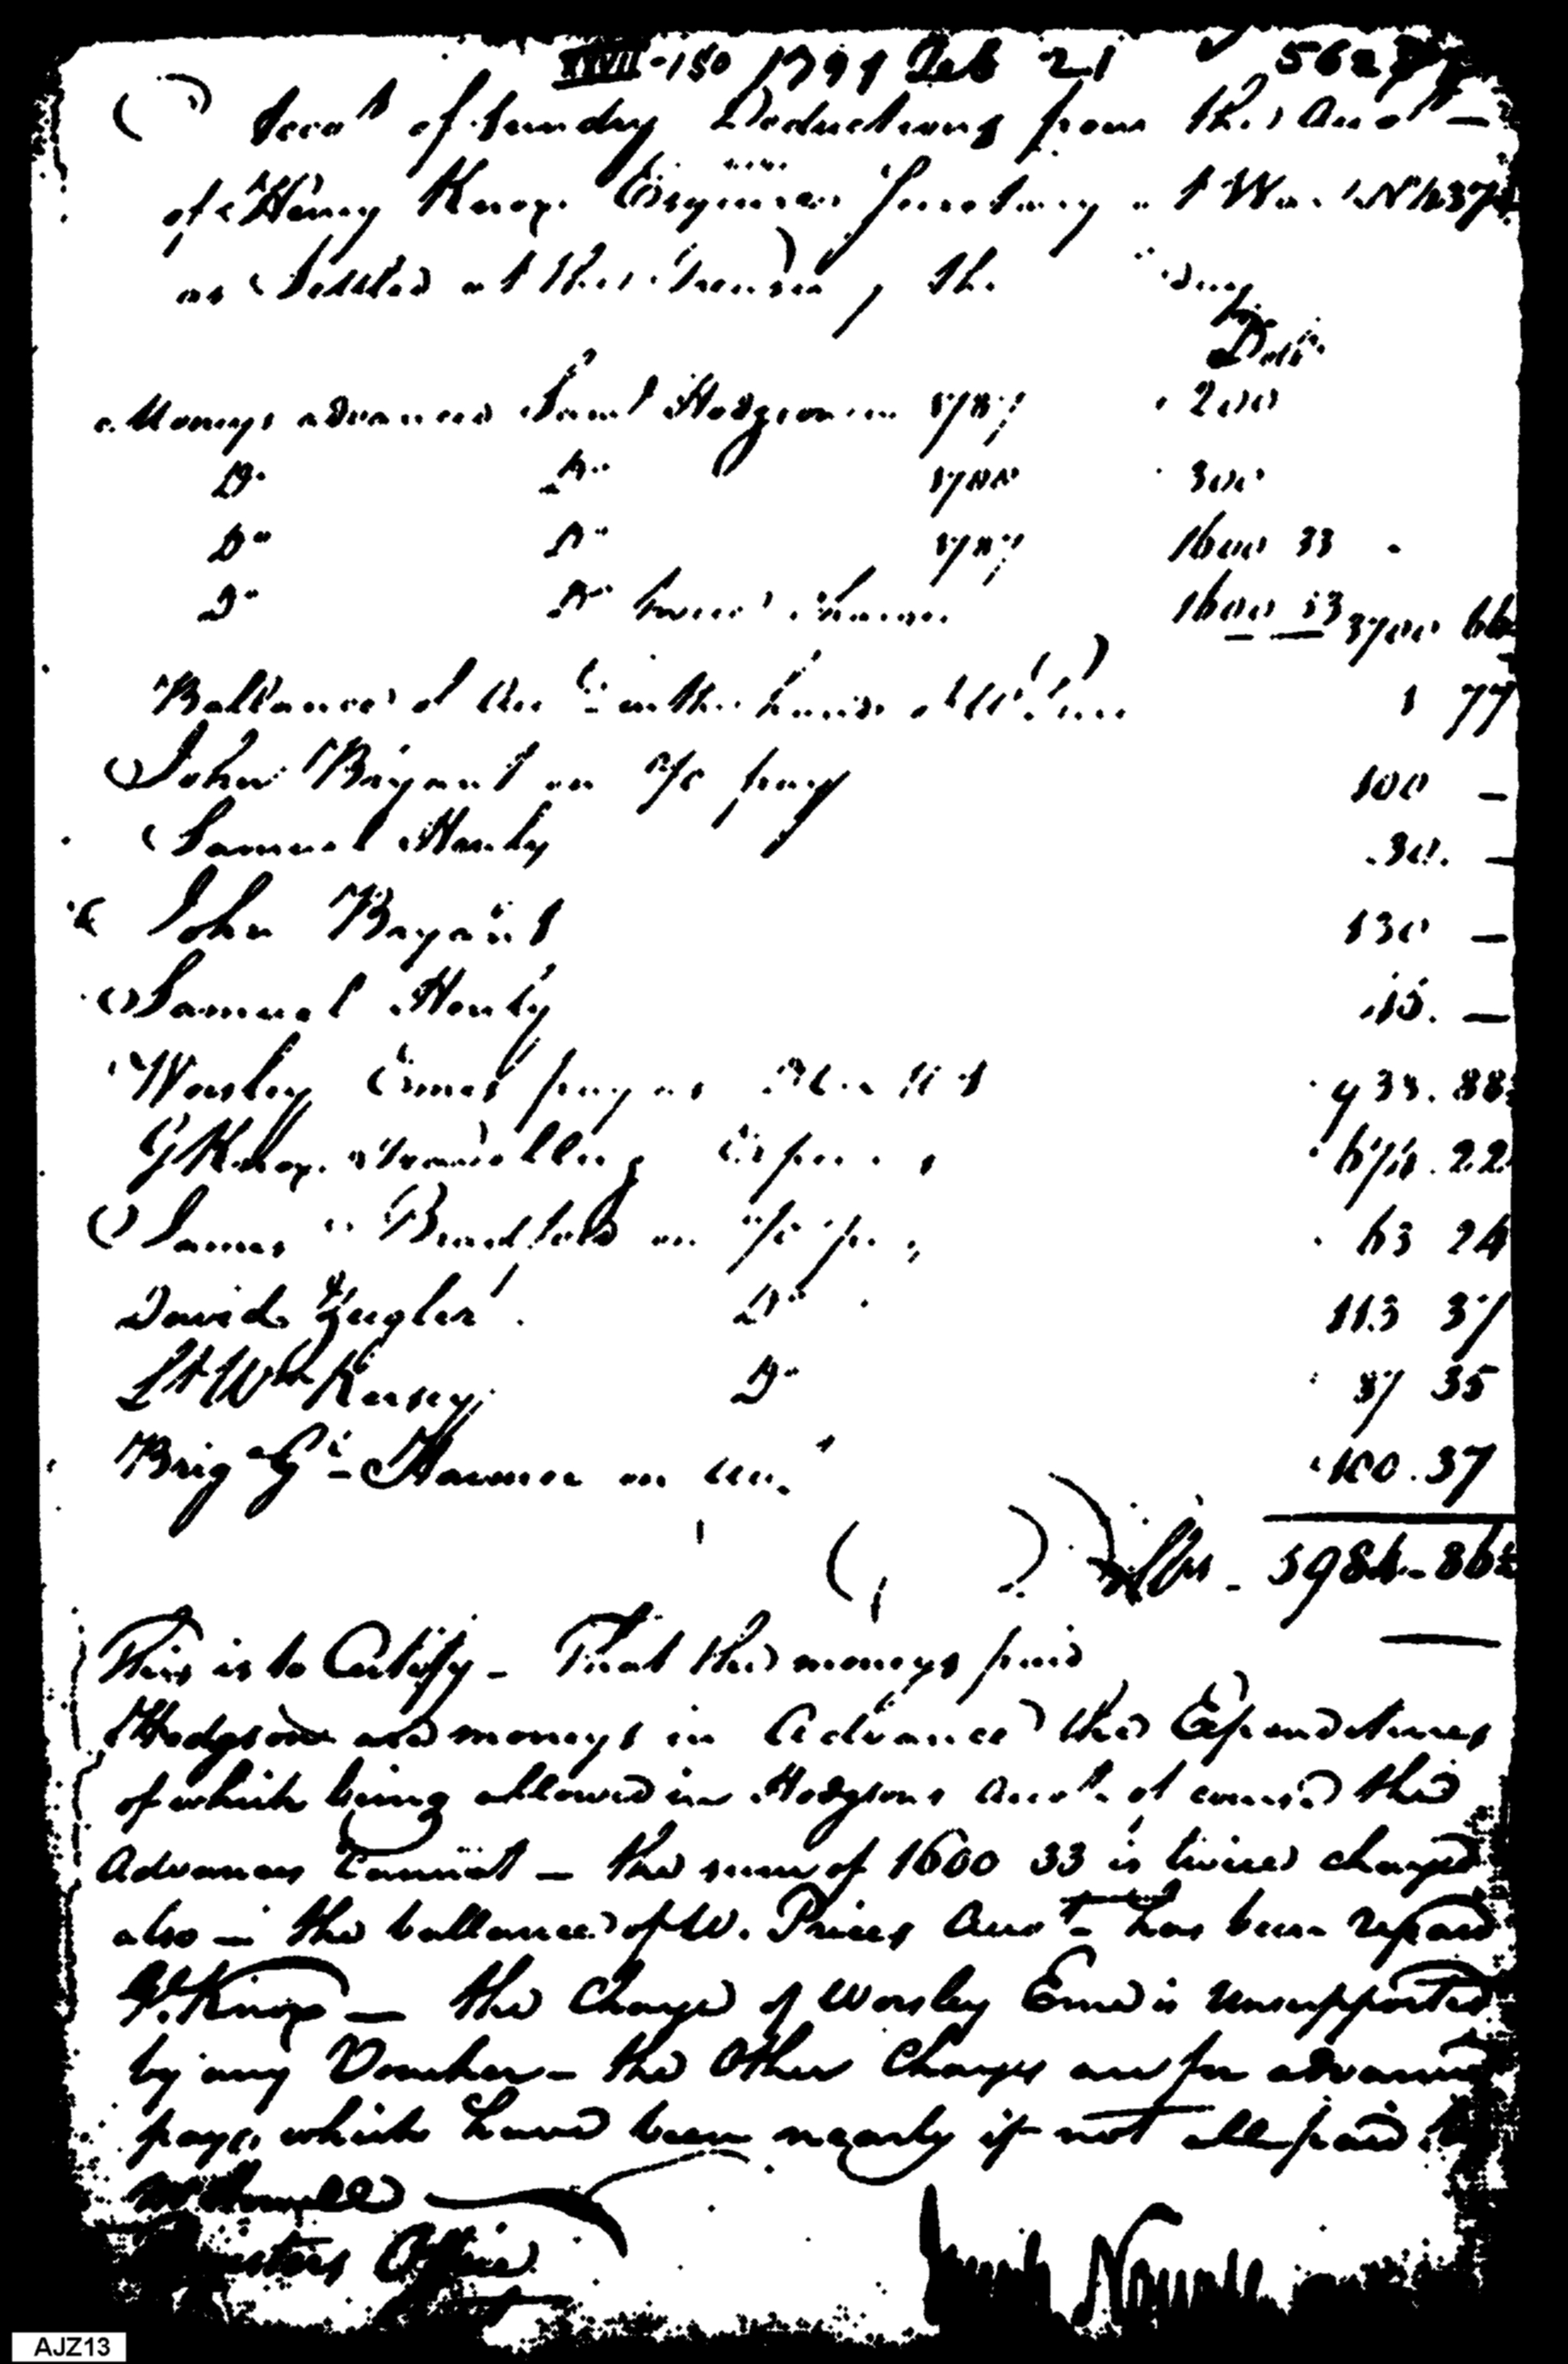 XXVII-150 1791 Feb 21 562
Accot of Sundry Deductions from the Accot
of Henry Knox Esquire Secretary at War No 637
as Settled at the Treasury the
Dolls
Moneys advanced Saml Hodgson in 1787 200
Do Do 1788 300
Do Do 1787 1600 33
Do Do twice charged 1600 33 3700 66
Ballance of Acct in the hands of W. Price 1 77
John Bryant on a/c pay 100 —
Samuel Hanly 30. —
John Bryant 130 —
Samuel Henly 15. —
Worsley Emes pay as 933. 88
G Knox Travelling Expences 678. 22
James Bradford on a/c pay 63 24
David Zeigler Do 113 37
Lt Wm Kersey Do 87 35
Brig Gl Harmar on acct 100. 37
Dlls - 5984-86
This is to Certify - That the moneys paid
Hodgson are moneys in Advance the Expenditures
of which being allowed in Hodgsons Accot of course the
Advances Cannot - the sum of 1600 33 is twice charged
also - the ballance of W. Prices Accot has been repaid
Gl. Knox — the Charge of Worsley Emes is Unsupported
by any Voucher - the Other Charges are for advanced
pay, which have been nearly if not all paid
Office
Joseph Nourse
AJZ13